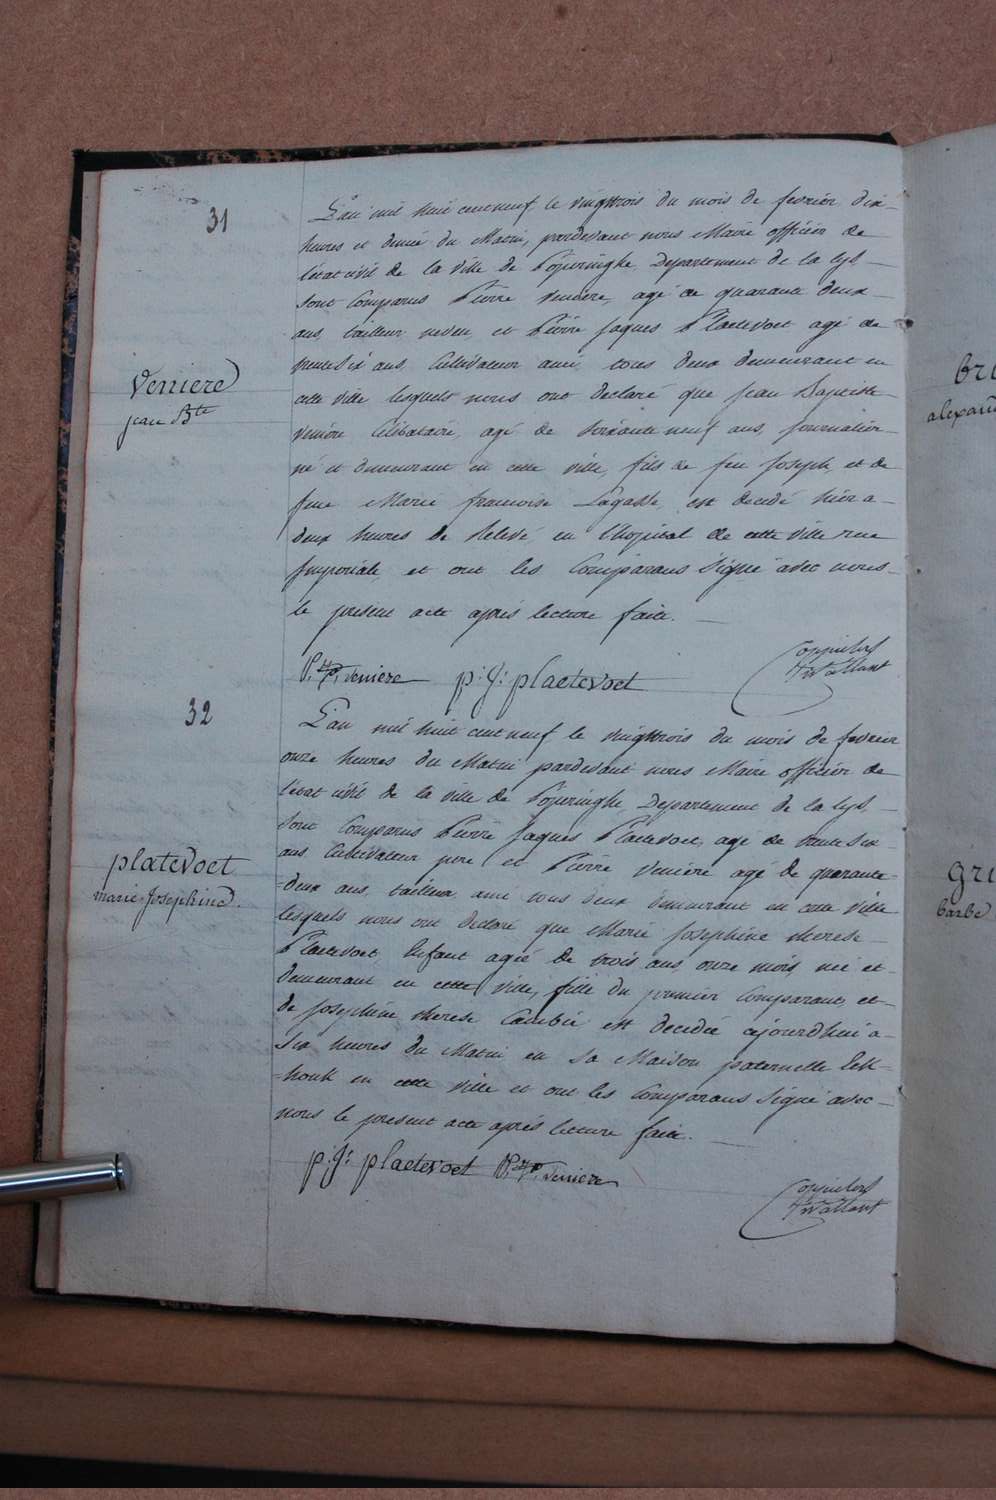 31
L'an mil huit cent neuf le vingttrois du mois de fevrier dix-
heures et demie du Matin, pardevant nous Maire officier de
l'etat civil de la ville de Popiringhe, Departement de la Lys -
sont Comparus Pierre Veniere, agé de quarante deux -
ans, tailleur, neveu, et Pierre Jaques Plaetevoet agé de
trente six ans, Cultivateur ami, tous deux demeurant en
cette ville lesquels nous ont declaré que Jean Baptiste
Veniere
jean Bte
veniere Celibataire, agé de soixante neuf ans, journalier
né et demeurant en cette ville, fils de feu Joseph, et de
feue Marie francoise Lagasse, est decedé hier a -
deux heures de Relevé, en l'hopital de cette ville rue
Imperiale, et ont les Comparans signé avec nous -
le present acte aprés lecture faite. -
P. veniere p: J: plaetevoet
32
L'an mil huit cent neuf le vingttrois du mois de fevrier
onze heures du Matin pardevant nous Maire officier de
l'etat civil de la ville de Popiringhe, Departement de la Lys, -
sont Comparus Pierre Jaques Plaetevoet, agé de trente six -
ans Cultivateur pere et Pierre Veniere agé de quarante
platevoet
marie Josephine.
=deux ans, tailleur ami tous deux demeurant en cette ville
lesquels nous ont declaré que Marie Josephine therese -
Plaetevoet, Enfant agée de trois ans, onze mois, née et -
demeurant en cette ville, fille du premier Comparant, et -
de Josephine therese Cambié est decedée aujourdhui a -
six heures du Matin en sa Maison paternelle
=houk en cette ville et ont les Comparans signé avec -
nous le present acte aprés lecture faite. -
p: J: plaetevoet P. veniere
bri
alexan
gri
barbe